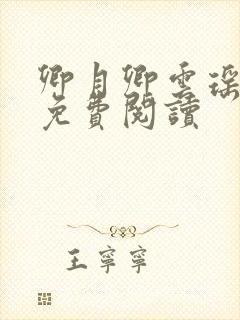 卿月卿雲瑤
免費閱讀
王寧寧